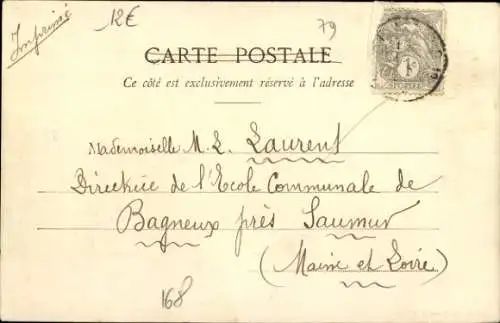 Imprimé
12€
79
CARTE POSTALE
Ce côté est exclusivement réservé à l'adresse
1c
POSTES
Mademoiselle M. L. Laurent
Directrice de l'Ecole Communale de
Bagneux près Saumur
(Maine et Loire)
168